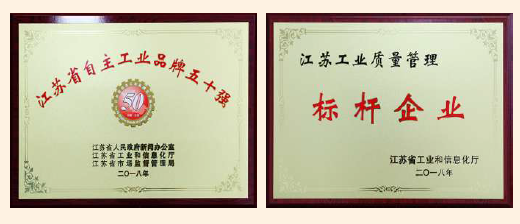 江苏省自主工业品牌五十强
50
江苏省人民政府新闻办公室
江苏省工业和信息化厅
江苏省市场监督管理局
二〇一八年
江苏工业质量管理
标杆企业
江苏省工业和信息化厅
二〇一八年